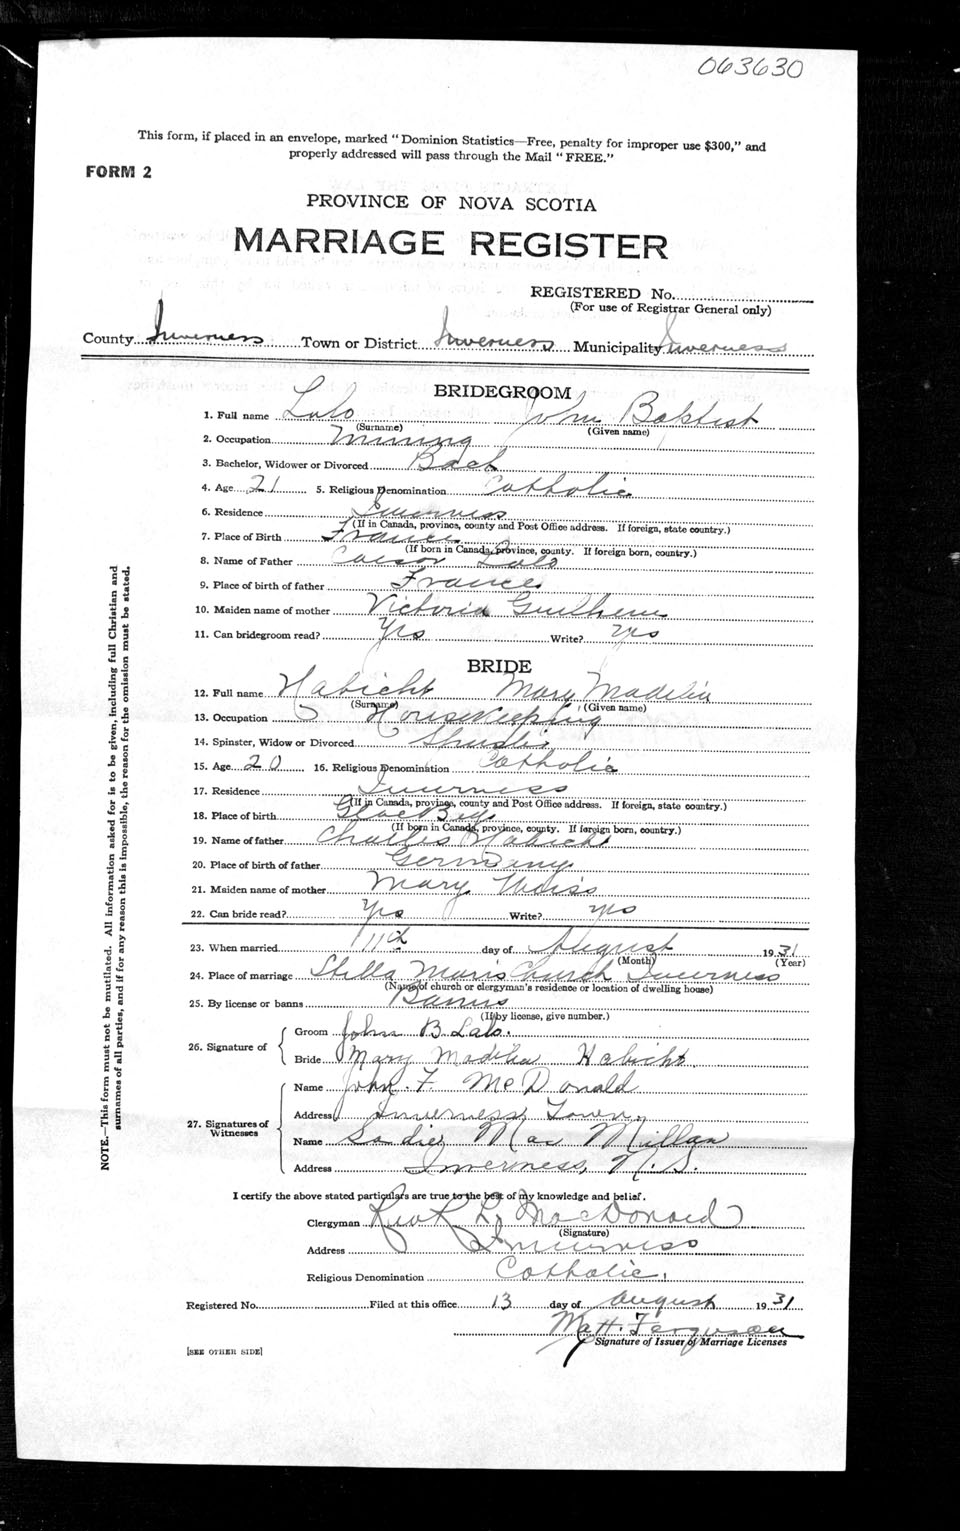 063630
This form, if placed in an envelope, marked "Dominion Statistics—Free, penalty for improper use $300," and
properly addressed will pass through the Mail "FREE."
FORM 2
PROVINCE OF NOVA SCOTIA
MARRIAGE REGISTER
REGISTERED No.
(For use of Registrar General only)
County Inverness Town or District Inverness Municipality Inverness
BRIDEGROOM
1. Full name Lalo John Baptist
(Surname) (Given name)
2. Occupation Mining
3. Bachelor, Widower or Divorced Bach
4. Age 21 5. Religious Denomination Catholic
6. Residence Inverness
(If in Canada, province, county and Post Office address. If foreign, state country.)
7. Place of Birth France
(If born in Canada, province, county. If foreign born, country.)
8. Name of Father Caesar Lalo
9. Place of birth of father France
10. Maiden name of mother Victoria
11. Can bridegroom read? Yes Write? Yes
BRIDE
12. Full name Habicht Mary Madelia
(Surname) (Given name)
13. Occupation Housekeeping
14. Spinster, Widow or Divorced
15. Age 20 16. Religious Denomination Catholic
17. Residence Inverness
(If in Canada, province, county and Post Office address. If foreign, state country.)
18. Place of birth Glace Bay
(If born in Canada, province, county. If foreign born, country.)
19. Name of father Charles Habicht
20. Place of birth of father Germany
21. Maiden name of mother Mary Weiss
22. Can bride read? Yes Write? Yes
23. When married 11th day of August 1931
(Month) (Year)
24. Place of marriage Stella Maris Church Inverness
(Name of church or clergyman's residence or location of dwelling house)
25. By license or banns Banns
(If by license, give number.)
26. Signature of
Groom John B Lalo.
Bride Mary Madelia Habicht
27. Signatures of Witnesses
Name John. F. McDonald
Address Inverness Town.
Name Sadie Mac Millan
Address Inverness, N. S.
I certify the above stated particulars are true to the best of my knowledge and belief.
Clergyman Rev R. L. MacDonald
(Signature)
Address Inverness
Religious Denomination Catholic.
Registered No. Filed at this office 13 day of August 1931
Matt. Ferguson
Signature of Issuer of Marriage Licenses
[SEE OTHER SIDE]
NOTE.—This form must not be mutilated. All information asked for is to be given, including full Christian and
surnames of all parties, and if for any reason this is impossible, the reason for the omission must be stated.